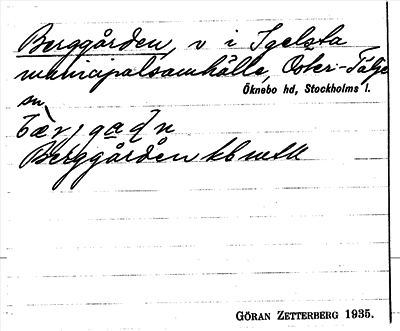 Berggården, v i Igelsta
municipalsamhälle, Öster-Tälje
sn
Öknebo hd, Stockholms l.
bær,gadn
Berggården kbmtl
GÖRAN ZETTERBERG 1935.